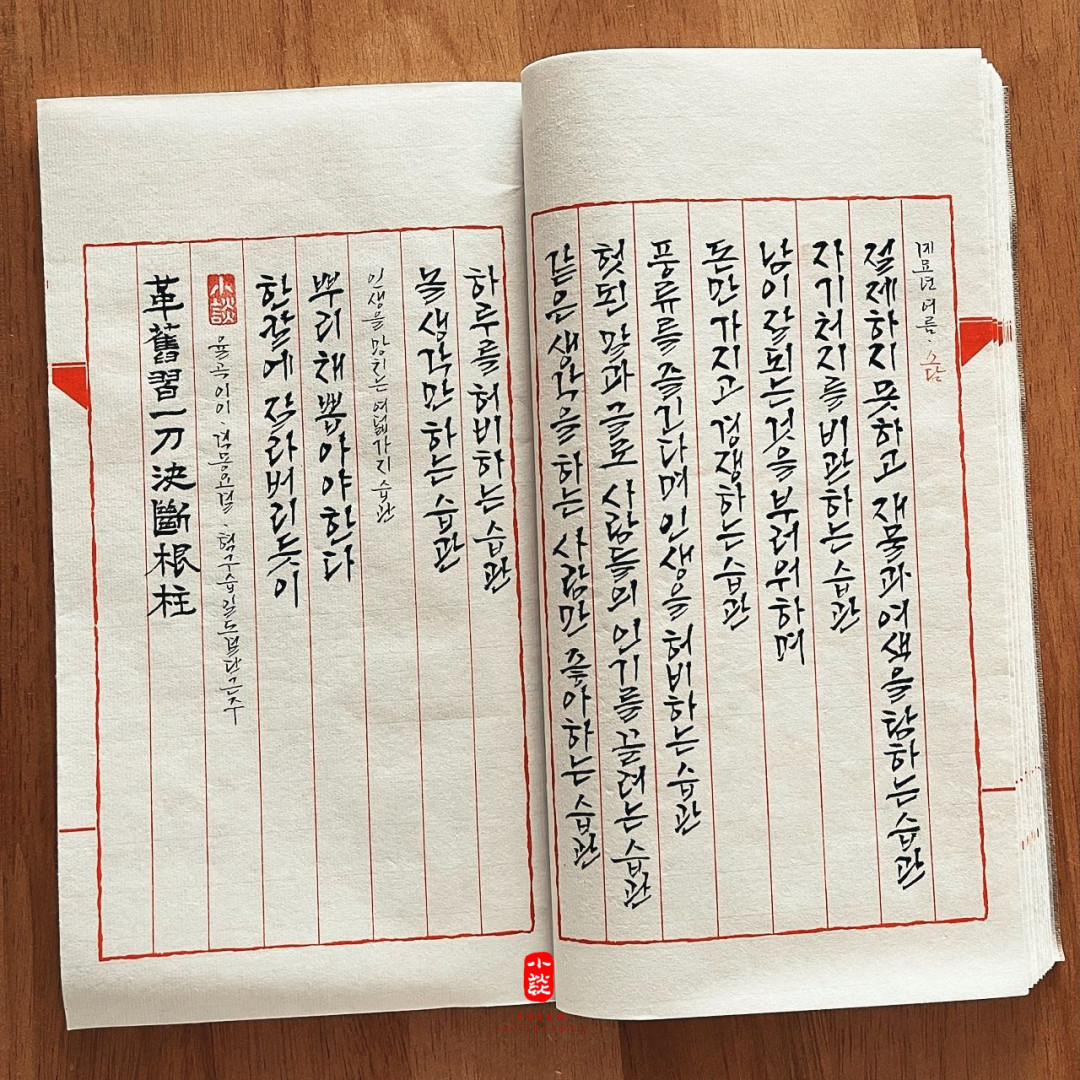 革舊習一刀決斷根柱
小談
율곡이이 · 격몽요결 · 혁구습일도결단근주
한칼에 잘라버리듯이
뿌리채 뽑아야한다
인생을 망치는 여덟가지 습관
놀 생각만 하는 습관
하루를 허비하는 습관
같은 생각을 하는 사람만 좋아하는 습관
헛된 말과 글로 사람들의 인기를 끌려는 습관
풍류를 즐긴다며 인생을 허비하는 습관
돈만 가지고 경쟁하는 습관
남이 잘되는 것을 부러워하며
자기처지를 비관하는 습관
절제하지 못하고 재물과 여색을 탐하는 습관
계묘년 여름 · 소담
小談